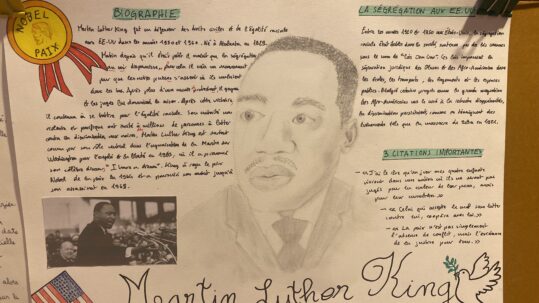 NOBEL
PAIX
BIOGRAPHIE
Martin Luther King fut un défenseur des droits civils et de l'égalité raciale
aux EE.UU dans les années 1950 et 1960. Né à Atlanta en 1929.
Martin depuis qu'il était petit il voulait que la ségrégation
pour que les autres puissent s'asseoir où ils voulaient
dans les bus. Après plus d'une année
et les juges leur donnèrent la raison. Après cette victoire,
il continua à se battre pour l'égalité raciale.
pacifique ont aidé millions de personnes à lutter
contre la discrimination Martin Luther King est surtout
connu par son rôle central dans l'organisation de la Marche sur
Washington pour l'emploi et la liberté en 1963, où il a prononcé
son célèbre discours "I have a dream". King a reçu le prix
Nobel de la paix la 1964 et a poursuivi son combat jusqu'à
son assassinat en 1968.
LA SÉGRÉGATION AUX EE.UU
Entre les années 1950 et 1960 aux États-Unis, la ségrégation
raciale était
sous le nom de "Lois Jim Crow". Ces lois imposaient la
séparation juridique des Blancs et des Afro-Américains dans
les écoles, les transports, les logements et les espaces
publics. Malgré cela
des Afro-Américains vers le nord à la recherche d'opportunités,
les discriminations persistaient comme en témoignent des
événements tels que le massacre de Tulsa en 1921.
3 CITATIONS IMPORTANTES
- «J'ai le rêve qu'un jour mes quatre enfants
vivront dans une nation où ils ne seront pas
jugés pour la couleur de leur peau, mais
pour leur caractère.»
- « Celui qui accepte le mal sans lutter
contre lui, coopère avec lui.»
- « La paix n'est pas simplement
l'absence de conflit, mais l'existence
de la justice pour tous.»
Martin Luther King